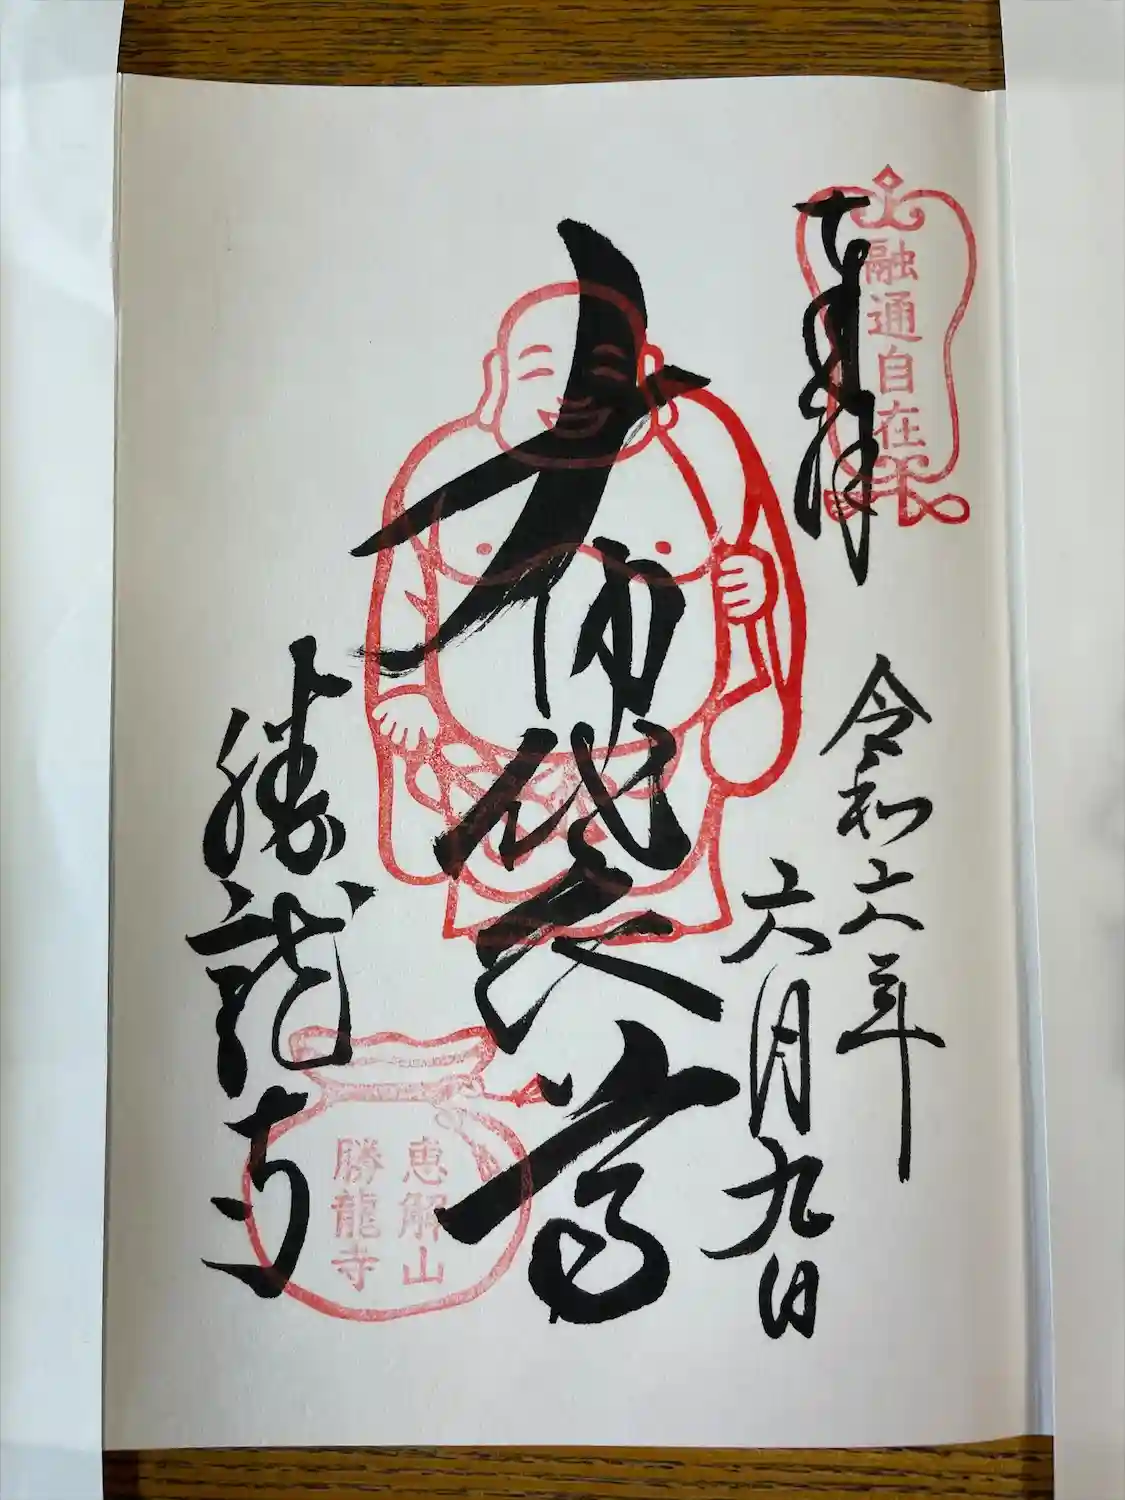 奉拝
融通自在
令和六年
六月九日
布袋尊
恵解山
勝龍寺
勝龍寺